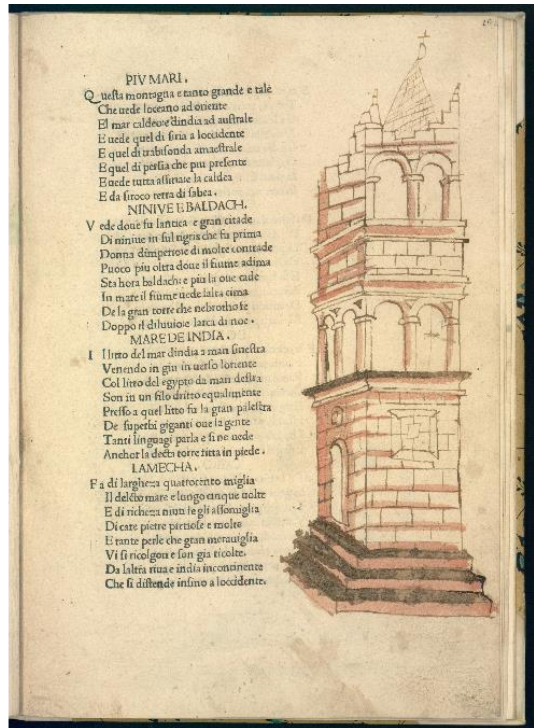 PIV MARI.
Questa montagna e tanto grande e tale
Che uede loceano ad oriente
El mar caldeo e dindia ad australe
E uede quel di siria a loccidente
E quel di trabisonda amaestrale
E quel di persia che piu presente
E uede tutta assiriae la caldea
E da siroco terra di sabea.
NINIVE E BALDACH.
Vede doue fu lantica e gran citade
Di niniue in sul tigris che fu prima
Donna dimperio e di molte contrade
Puoco piu oltra doue il fiume adima
Sta hora baldach: e piu la oue cade
In mare il fiume uede lalta cima
De la gran torre che nebrotho fe
Doppo il diluuio e larca di noe.
MARE DE INDIA.
Il lito del mar dindia a man sinestra
Venendo in giu in uerso loriente
Col lito del egypto da man destra
Son in un filo dritto equalmente
Presso a quel litto fu la gran palestra
De superbi giganti oue la gente
Tanti linguagi parla e si ne uede
Anchor la decta torre fitta in piede.
LAMECHA.
Fa di largheza quatrocento miglia
Il decto mare e longo cinque uolte
E di richeza niun se gli assomiglia
Di care pietre pretiose e molte
E tante perle che gran merauiglia
Vi si ricolgon e son gia ricolte.
Da laltra riua e india incontinente
Che si distende insino a loccidente.